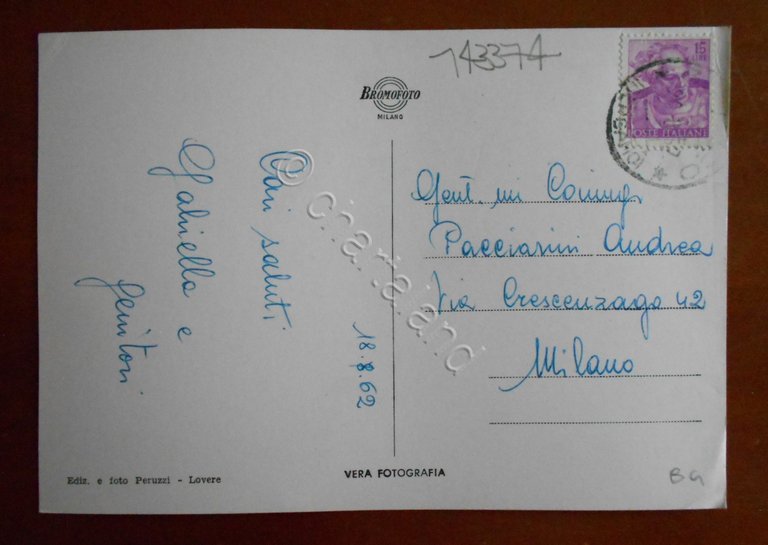 143374
BROMOFOTO
MILANO
15
LIRE
POSTE ITALIANE
Cari saluti
Gabriella e
genitori
18.8.62
Gent.mi Coniug.
Pacciarini Andrea
Via Crescenzago 42
Milano
© chartaland
Ediz. e foto Peruzzi - Lovere
VERA FOTOGRAFIA
BG